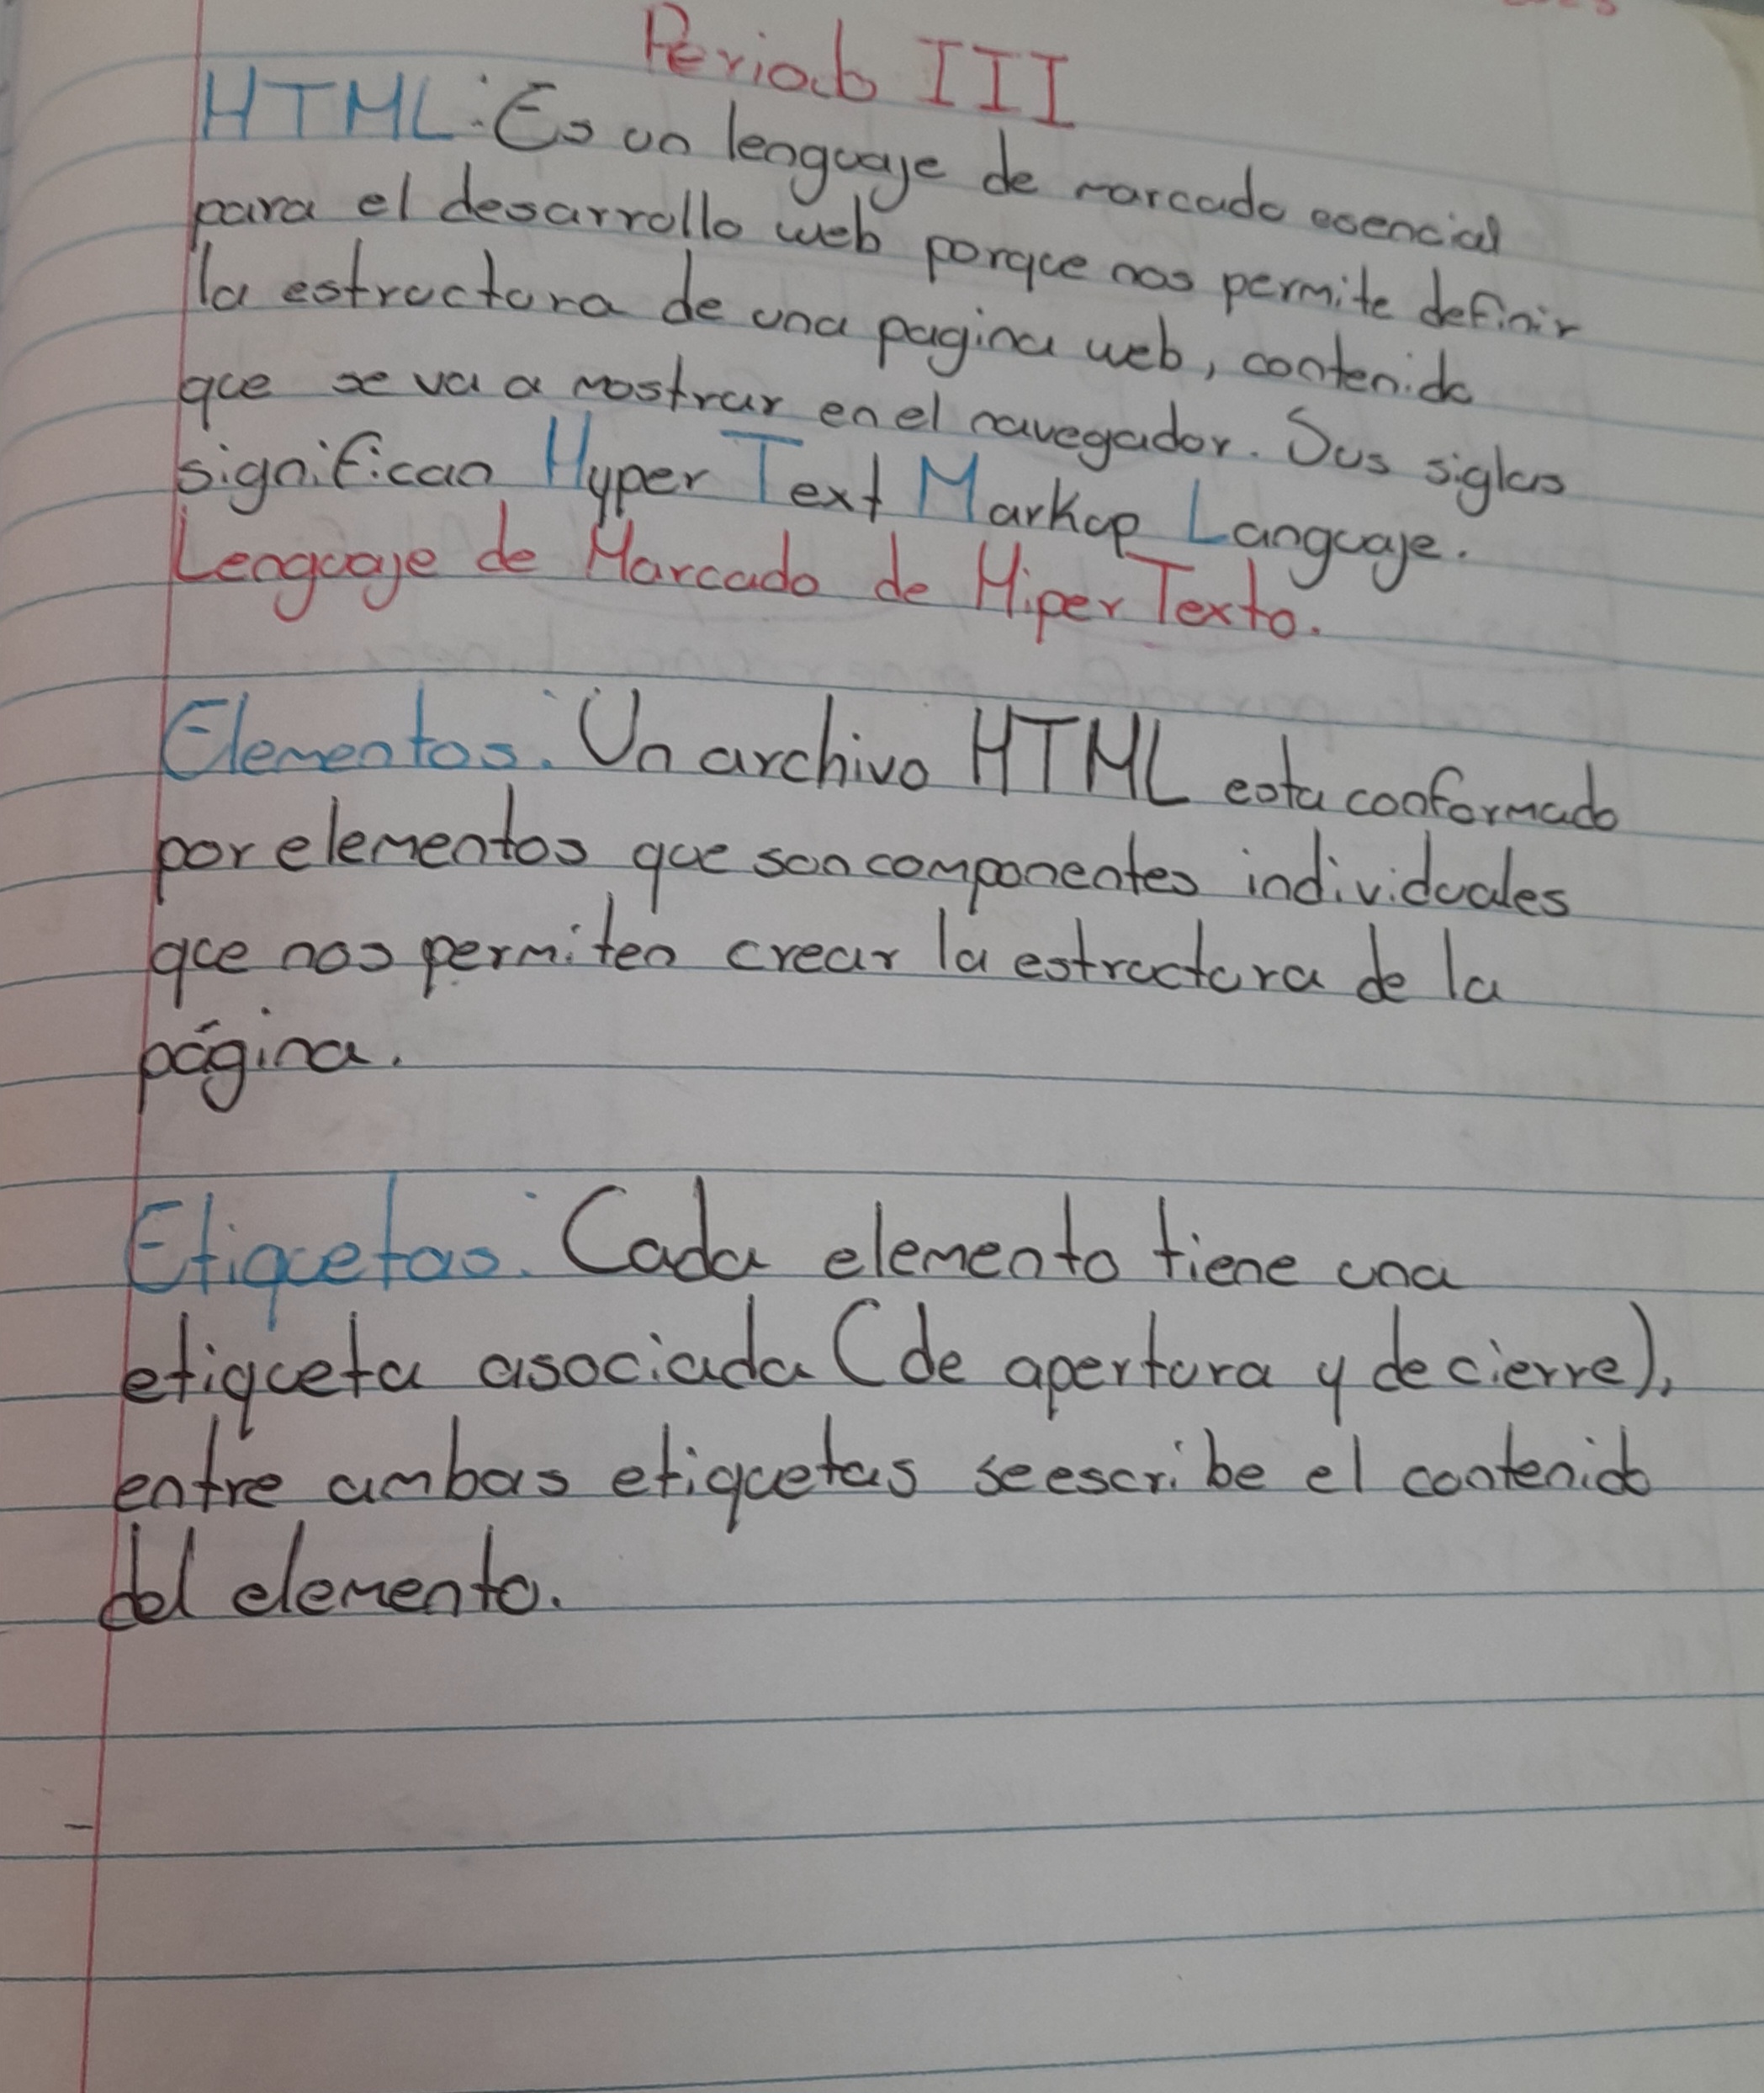 Periodo III
HTML: Es un lenguaje de marcado esencial
para el desarrollo web porque nos permite definir
la estructura de una pagina web, contenido
que se va a mostrar en el navegador. Sus siglas
significan Hyper Text Markup Languaje.
Lenguaje de Marcado de Hiper Texto.
Elementos: Un archivo HTML esta conformado
por elementos que son componentes individuales
que nos permiten crear la estructura de la
página.
Etiquetas: Cada elemento tiene una
etiqueta asociada (de apertura y de cierre),
entre ambas etiquetas se escribe el contenido
del elemento.